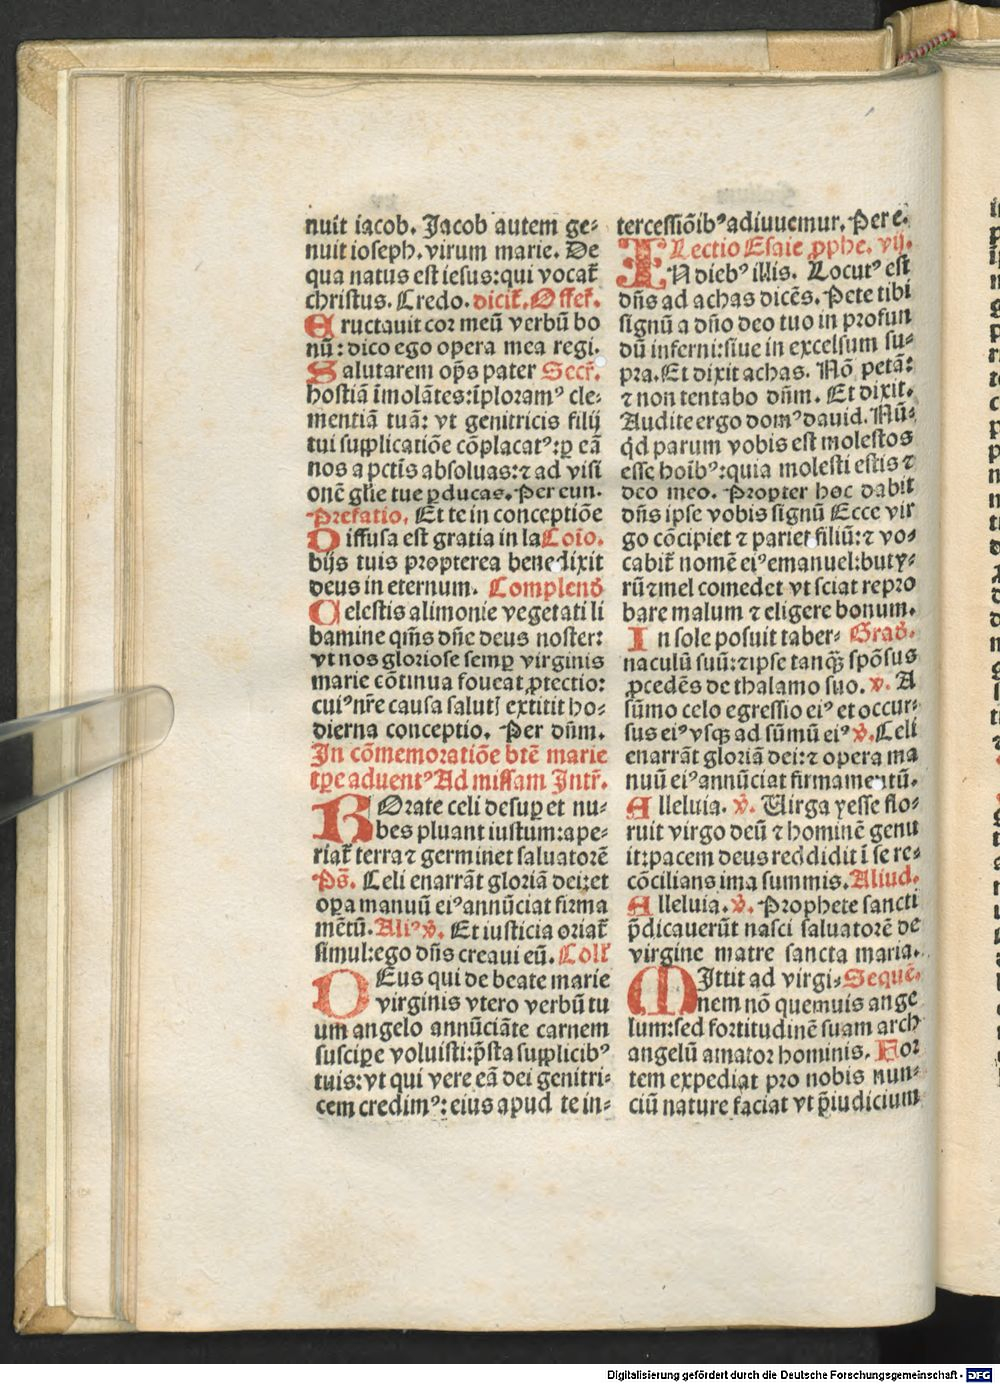 nuit iacob. Jacob autem ge-
nuit ioseph. virum marie. De
qua natus est iesus: qui vocat᷑
christus. Credo. dicit᷑. Offer᷑.
Eructauit cor meū verbū bo
nū: dico ego opera mea regi.
Salutarem op̄s pater Secr᷑.
hostiā īmolātes: īploramꝰ cle-
mentiā tuā: vt genitricis filij
tui supplicatiōe cōplacatꝰ: ꝑ eā
nos a pctīs absoluas: ⁊ ad visi
onē gl̄ie tue ꝑducas. Per eun.
Prefatio. Et te in conceptiōe
Diffusa est gratia in la Coīo.
bijs tuis propterea benedixit
deus in eternum. Complend̄
Celestis alimonie vegetati li
bamine qm̄s dn̄e deus noster:
vt nos gloriose semꝑ virginis
marie cōtinua foueat ꝓtectio:
cuiꝰ nr̄e causa salutꝭ extitit ho-
dierna conceptio. Per dn̄m.
In cōmemoratiōe btē marie
tꝑe aduentꝰ Ad missam Intr᷑.
ROrate celi desuꝑ et nu-
bes pluant iustum: ape-
riat᷑ terra ⁊ germinet saluatorē
Ps̄. Celi enarrāt gloriā dei: et
oꝑa manuū eiꝰ annūciat firma
mētū. Aliꝰ v̄. Et iusticia oriat᷑
simul: ego dn̄s creaui eū. Coll᷑
DEus qui de beate marie
virginis vtero verbū tu
um angelo annūciāte carnem
suscipe voluisti: p̄sta supplicibꝰ
tuis: vt qui vere eā dei genitri-
cem credimꝰ: eius apud te in-
tercessiōibꝰ adiuuemur. Per e.
Lectio Esaie ꝓphe. vij.
IN diebꝰ illis. Locutꝰ est
dn̄s ad achas dicēs. Pete tibi
signū a dn̄o deo tuo in profun
dū inferni: siue in excelsum su-
pra. Et dixit achas. Nō petā:
⁊ non tentabo dn̄m. Et dixit.
Audite ergo domꝰ dauid. Nū-
qd̄ parum vobis est molestos
esse hoībꝰ: quia molesti estis ⁊
deo meo. Propter hoc dabit
dn̄s ipse vobis signū Ecce vir
go cōcipiet ⁊ pariet filiū: ⁊ vo-
cabit᷑ nomē eiꝰ emanuel: buty-
rū ⁊ mel comedet vt sciat repro
bare malum ⁊ eligere bonum.
In sole posuit taber- Grad̄.
naculū suū: ⁊ ipse tanq̄ꝫ spōsus
ꝓcedēs de thalamo suo. v. A
sūmo celo egressio eiꝰ et occur-
sus eiꝰ vsqꝫ ad sūmū eiꝰ v̄. Celi
enarrāt gloriā dei: ⁊ opera ma
nuū eiꝰ annūciat firmamentū.
Alleluia. v̄. Uirga yesse flo-
ruit virgo deū ⁊ hominē genu
it: pacem deus reddidit ī se re-
cōcilians ima summis. Aliud.
Alleluia. v̄. Prophete sancti
p̄dicauerūt nasci saluatorē de
virgine matre sancta maria.
MIttit ad virgi- Sequē.
nem nō quemuis ange
lum: sed fortitudinē suam arch
angelū amator hominis. For
tem expediat pro nobis nun-
ciū nature faciat vt p̄iudicium
Digitalisierung gefördert durch die Deutsche Forschungsgemeinschaft - DFG